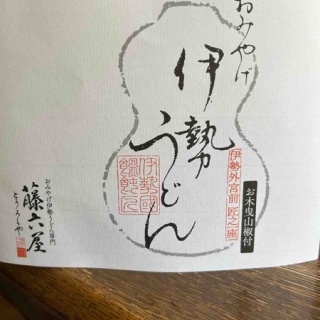 おみやげ
伊勢うどん
伊勢外宮前 匠之一座
お木曳山椒付
伊勢國
饂飩匠
おみやげ伊勢うどん専門
藤六屋
とうろくや